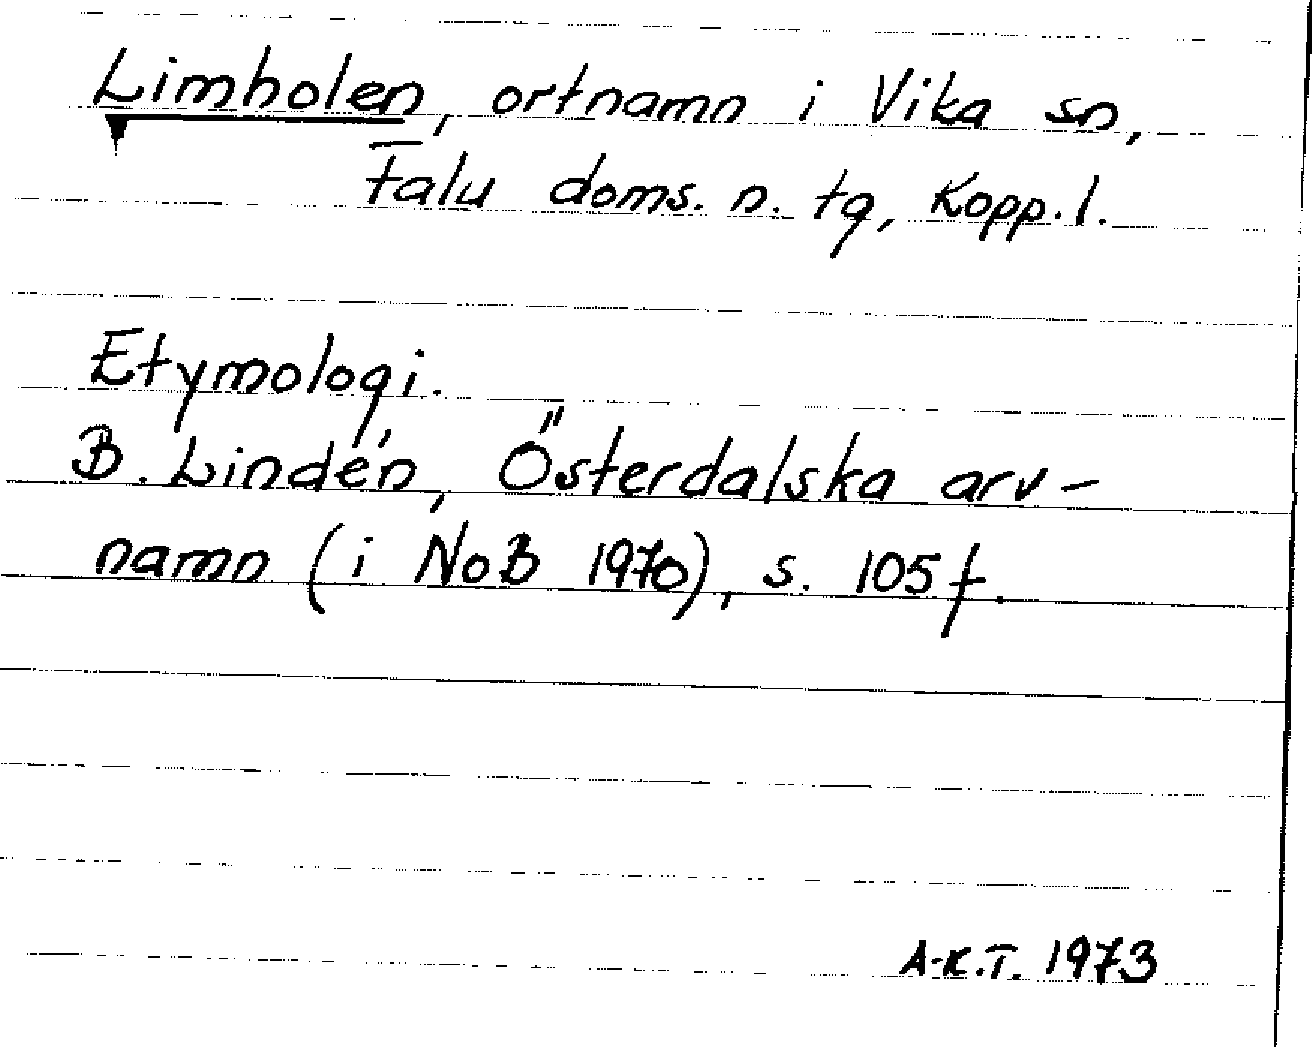 Limholen, ortnamn i Vika sn,
Falu doms. n. tg, Kopp. l.
Etymologi.
B. Lindén, Österdalska arv-
namn (i NoB 1970), s. 105 f.
A-K.T. 1973